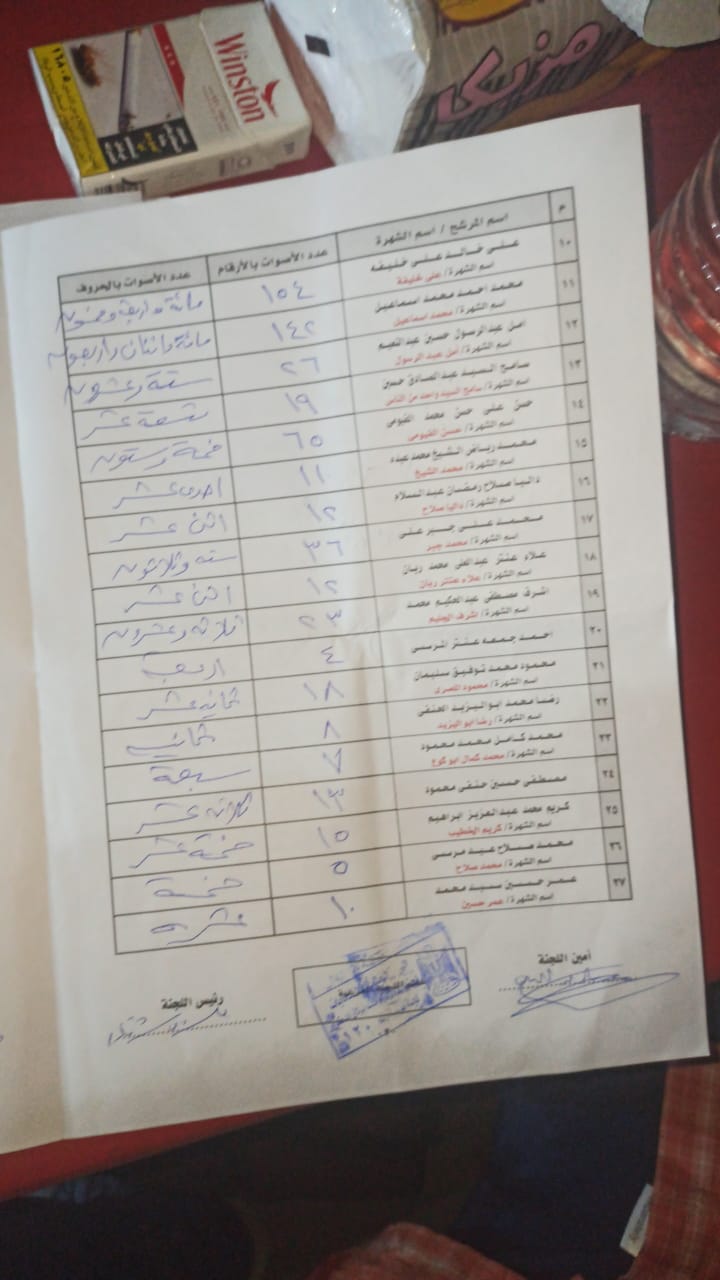 Winston
مزيكا
م
اسم المرشح / اسم الشهرة
عدد الأصوات بالأرقام
عدد الأصوات بالحروف
١٠ على خالد على خليفه ١٥٤ مائة واربعة وخمسون
اسم الشهرة / على خليفة
١١ محمد احمد محمد اسماعيل ١٤٢ مائة واثنان واربعون
اسم الشهرة / محمد اسماعيل
١٢ امل عبدالرسول حسين عبدالنعيم ٢٦ ستة وعشرون
اسم الشهرة / امل عبد الرسول
١٣ سامح السيد عبدالصادق حسين ١٩ تسعة عشر
اسم الشهرة / سامح السيد واحد من الناس
١٤ حسن على حسن محمد الفيومى ٦٥ خمسة وستون
اسم الشهرة / حسن الفيومى
١٥ محمد رياض الشيخ محمد عبده ١١ احدى عشر
اسم الشهرة / محمد الشيخ
١٦ داليا صلاح رمضان عبدالسلام ١٢ اثنى عشر
اسم الشهرة / داليا صلاح
١٧ محمد على جبر على ٣٦ ستة وثلاثون
اسم الشهرة / محمد جبر
١٨ علاء عنتر عبدالغنى محمد ريان ١٢ اثنى عشر
اسم الشهرة / علاء عنتر ريان
١٩ اشرف مصطفى عبدالحكيم محمد ٢٣ ثلاثة وعشرون
اسم الشهرة / اشرف
٢٠ احمد جمعه عنتر المرسى ٤ اربعة
٢١ محمود محمد توفيق سليمان ١٨ ثمانية عشر
اسم الشهرة / محمود المصرى
٢٢ رضا محمد ابواليزيد الحنفى ٨ ثمانية
اسم الشهرة / رضا ابو اليزيد
٢٣ محمد كامل محمد محمود ٧ سبعة
اسم الشهرة / محمد كمال ابو كوع
٢٤ مصطفى حسين حنفى محمود ١٣ ثلاثة عشر
٢٥ كريم محمد عبدالعزيز ابراهيم ١٥ خمسة عشر
اسم الشهرة / كريم الخطيب
٢٦ محمد صلاح عيد مرسى ٥ خمسة
اسم الشهرة / محمد صلاح
٢٧ عمر حسين سيد محمد ١٠ عشرة
اسم الشهرة / عمر حسين
أمين اللجنة
رئيس اللجنة